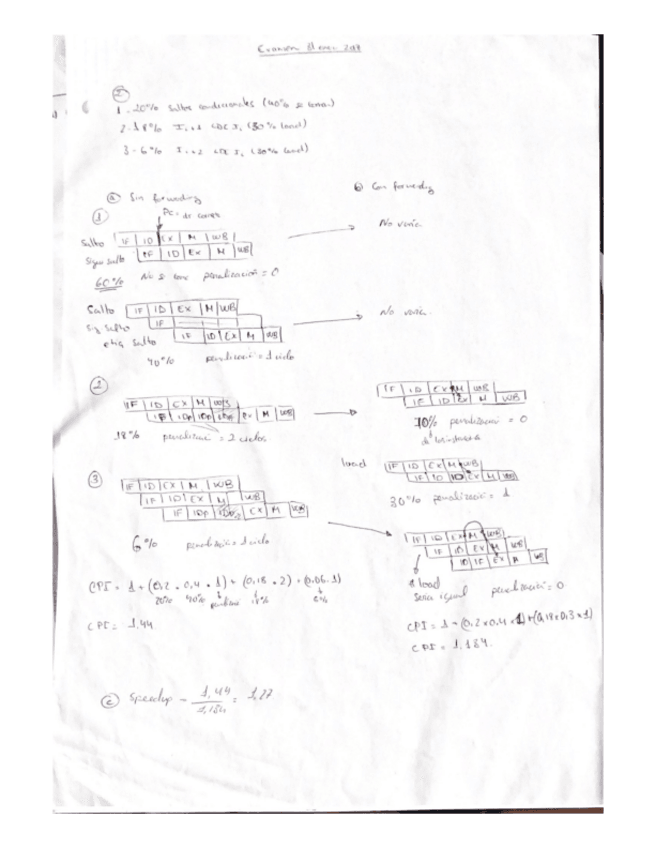 Examen Enero 2017
②
1 - 20% Saltos condicionales (40% se toma)
2 - 18% I i+1 LDE I i (30% load)
3 - 6% I i+2 LDE I i (30% load)
ⓐ Sin forwarding
ⓑ Con forwarding
①
PC
Salto IF ID EX M WB
Sigue salto IF ID EX M WB
No varía
60% No se toma penalización = 0
Salto IF ID EX M WB
Sig salto IF
etiq salto IF ID EX M WB
No varía
40% penalización = 1 ciclo
②
IF ID EX M WB
IF IDp IDp ID EX M WB
18% penalización = 2 ciclos
IF ID EX M WB
IF ID EX M WB
70% penalización = 0
load IF ID EX M WB
IF ID ID EX M WB
30% penalización = 1
③
IF ID EX M WB
IF ID EX M WB
IF IDp ID EX M WB
6% penalización = 1 ciclo
IF ID EX M WB
IF ID EX M WB
ID IF EX M WB
load
Sería igual penalización = 0
CPI = 1 + (0,2 · 0,4 · 1) + (0,18 · 2) + (0,06 · 1)
20% 40% 18% 6%
CPI = 1,44
CPI = 1 + (0,2 x 0,4 x 1) + (0,18 x 0,3 x 1)
CPI = 1,184
ⓒ Speedup = 1,44 = 1,27
1,184